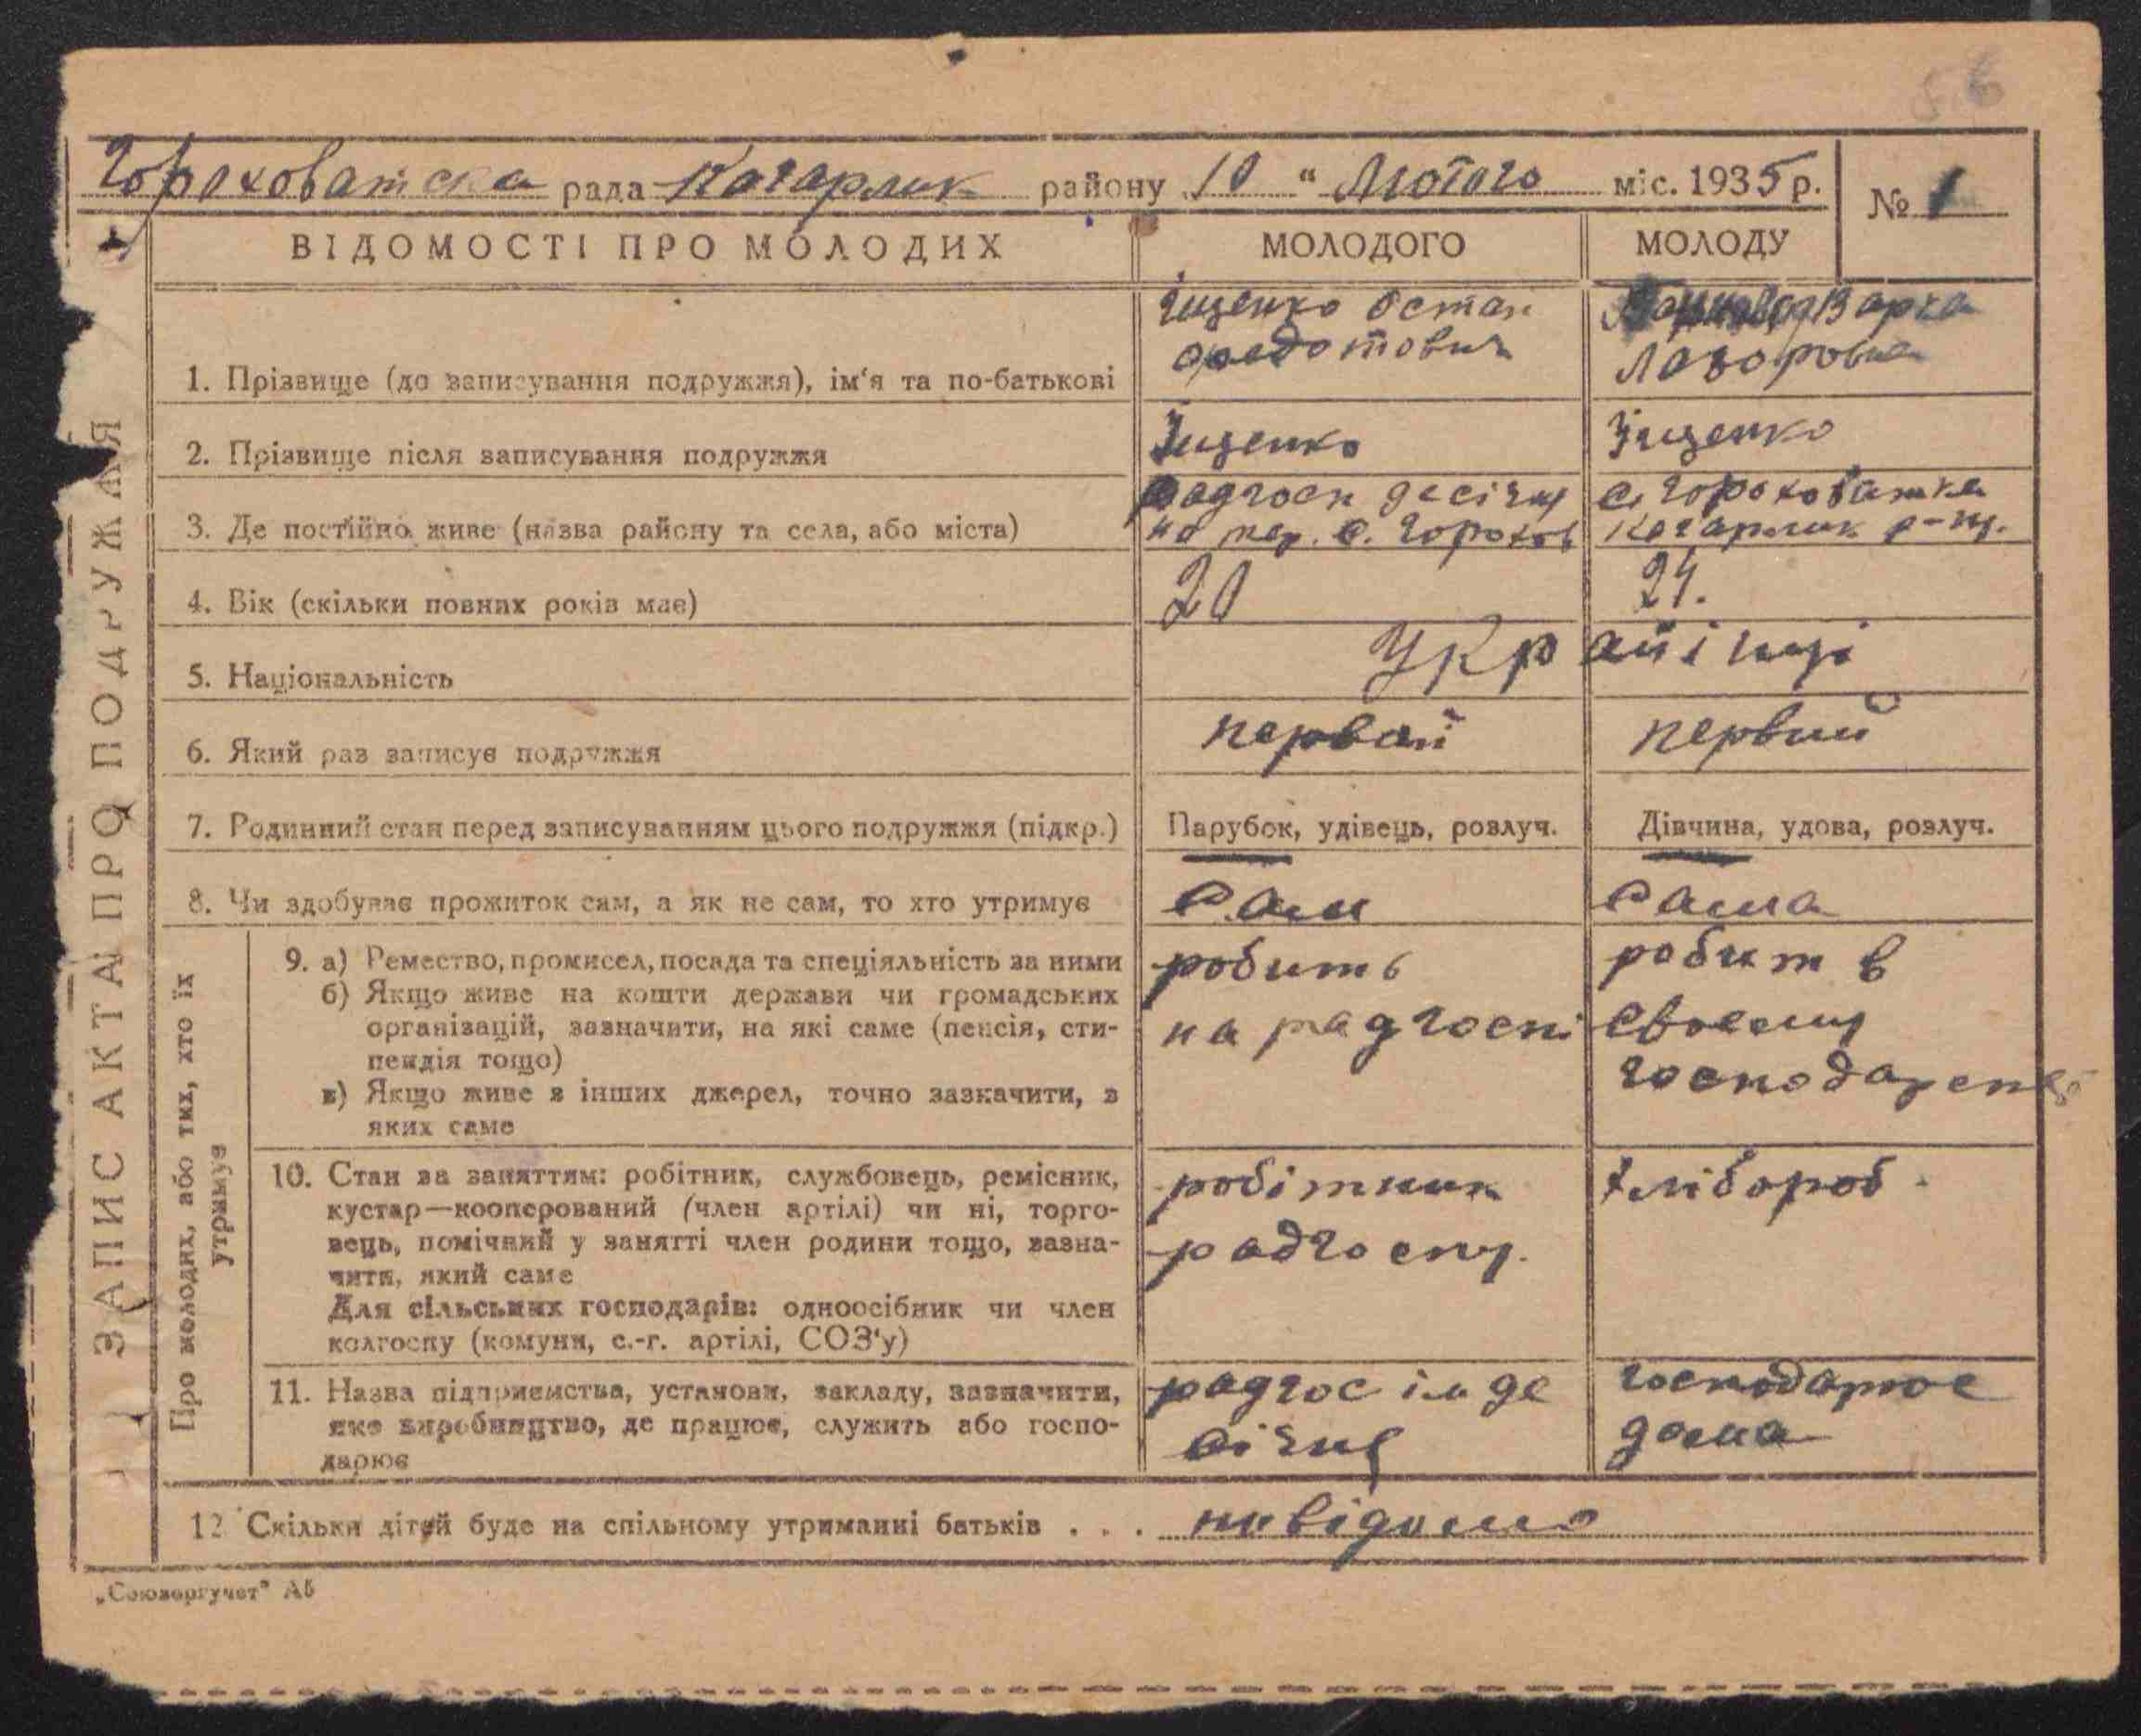 Гороховатска рада Кагарлик району 10 " Лютого міс. 1935 р. № 1
ВІДОМОСТІ ПРО МОЛОДИХ МОЛОДОГО МОЛОДУ
ЗАПИС АКТА ПРО ПОДРУЖЖЯ
1. Прізвище (до записування подружжя), ім'я та по-батькові
Іщенко Остап
Федотович
Варка
Лазоровна
2. Прізвище після записування подружжя Іщенко Іщенко
3. Де постійно живе (назва району та села, або міста)
радгосп
с. Гороховатка
Кагарлик р-ну.
4. Вік (скільки повних років має) 20 24.
5. Національність Украйінці
6. Який раз записує подружжя первий первий
7. Родинний стан перед записуванням цього подружжя (підкр.) Парубок, удівець, розлуч. Дівчина, удова, розлуч.
8. Чи здобуває прожиток сам, а як не сам, то хто утримує Сам Сама
Про молодих, або тих, хто їх
утримує
9. а) Ремество, промисел, посада та спеціяльність за ними
б) Якщо живе на кошти держави чи громадських
організацій, зазначити, на які саме (пенсія, сти-
пендія тощо)
в) Якщо живе з інших джерел, точно зазначити, з
яких саме
робить
на радгоспі
робит в
своему
10. Стан за заняттям: робітник, службовець, ремісник,
кустар—кооперований (член артілі) чи ні, торго-
вець, помічний у занятті член родини тощо, зазна-
чити, який саме
Для сільських господарів: одноосібник чи член
колгоспу (комуни, с.-г. артілі, СОЗ'у)
робітник
радгоспу.
хлібороб.
11. Назва підприємства, установи, закладу, зазначити,
яке виробництво, де працює, служить або госпо-
дарює
господарює
дома
12 Скільки дітей буде на спільному утриманні батьків . . . нивідомо
„Союзоргучет" А5